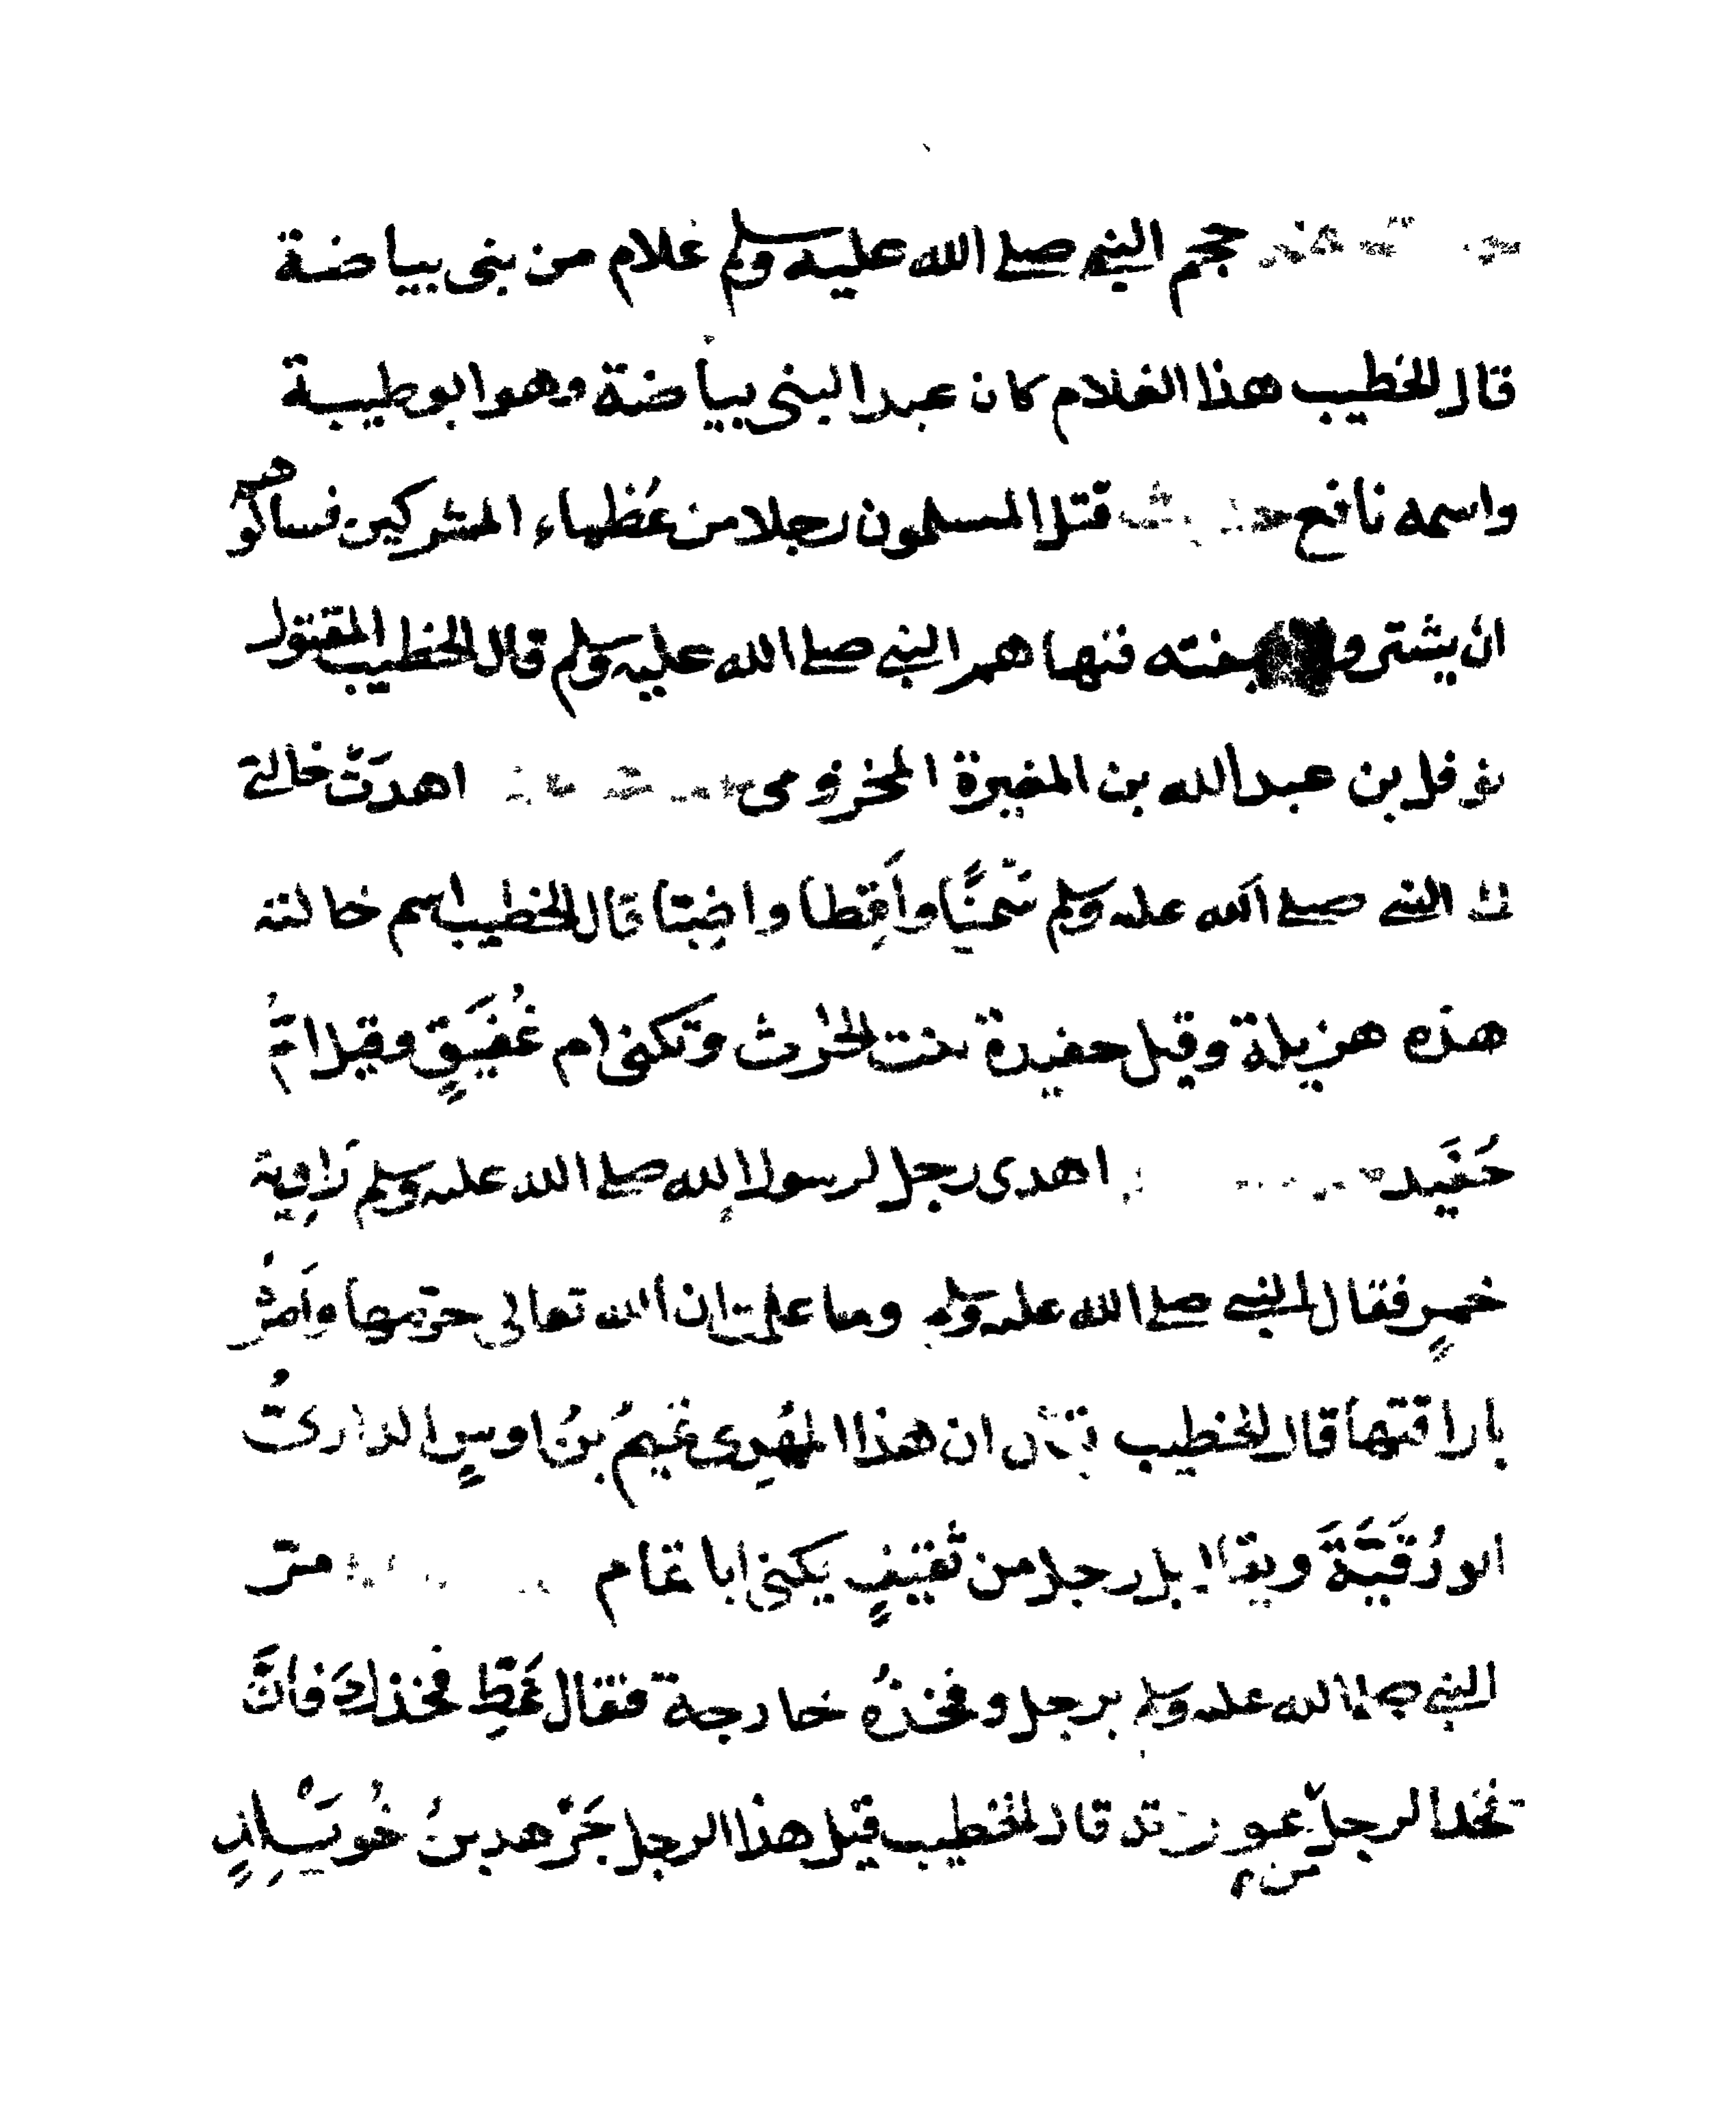 حجم النبي صلى الله عليه وسلم غلام من بني بياضة
قال الخطيب هذا الغلام كان عبدا لبني بياضة وهو ابو طيبة
واسمه نافع حديث قتل المسلمون رجلا من عُظماء المشركين فسالوهم
ان يشتروا جيفته فنهاهم النبي صلى الله عليه وسلم قال الخطيب المقتول
نوفل بن عبد الله بن المغيرة المخزومي اهدَتْ خالتي
الى النبي صلى الله عليه وسلم سَمْنًا وأَقِطا واضبّا قال الخطيب اسم خالته
هذه هزيلة وقيل حفيدة بنت الحرث وتكنى ام عُفَيَقٍ وقيل امُّ
حُفَيد اهدى رجل لرسول الله صلى الله عليه وسلم رَاوِية
خمرٍ فقال النبي صلى الله عليه وسلم وما علمت ان الله تعالى حرّمها وأَمرُ
باراقتها قال الخطيب يقال ان هذا المُهدِى تميمُ بنُ اوسٍ الدارىُّ
ابو رُقَيَّةَ ويقال بل رجلا من ثقيفٍ يكنى ابا تمام مرّ
النبي صلى الله عليه وسلم برجل وفخذُه خارجة فقال غَطِّ فخذك فانَّ
فخذ الرجل من عورته قال الخطيب قيل هذا الرجل جَرْهد بنُ خُوَيْلِدٍ